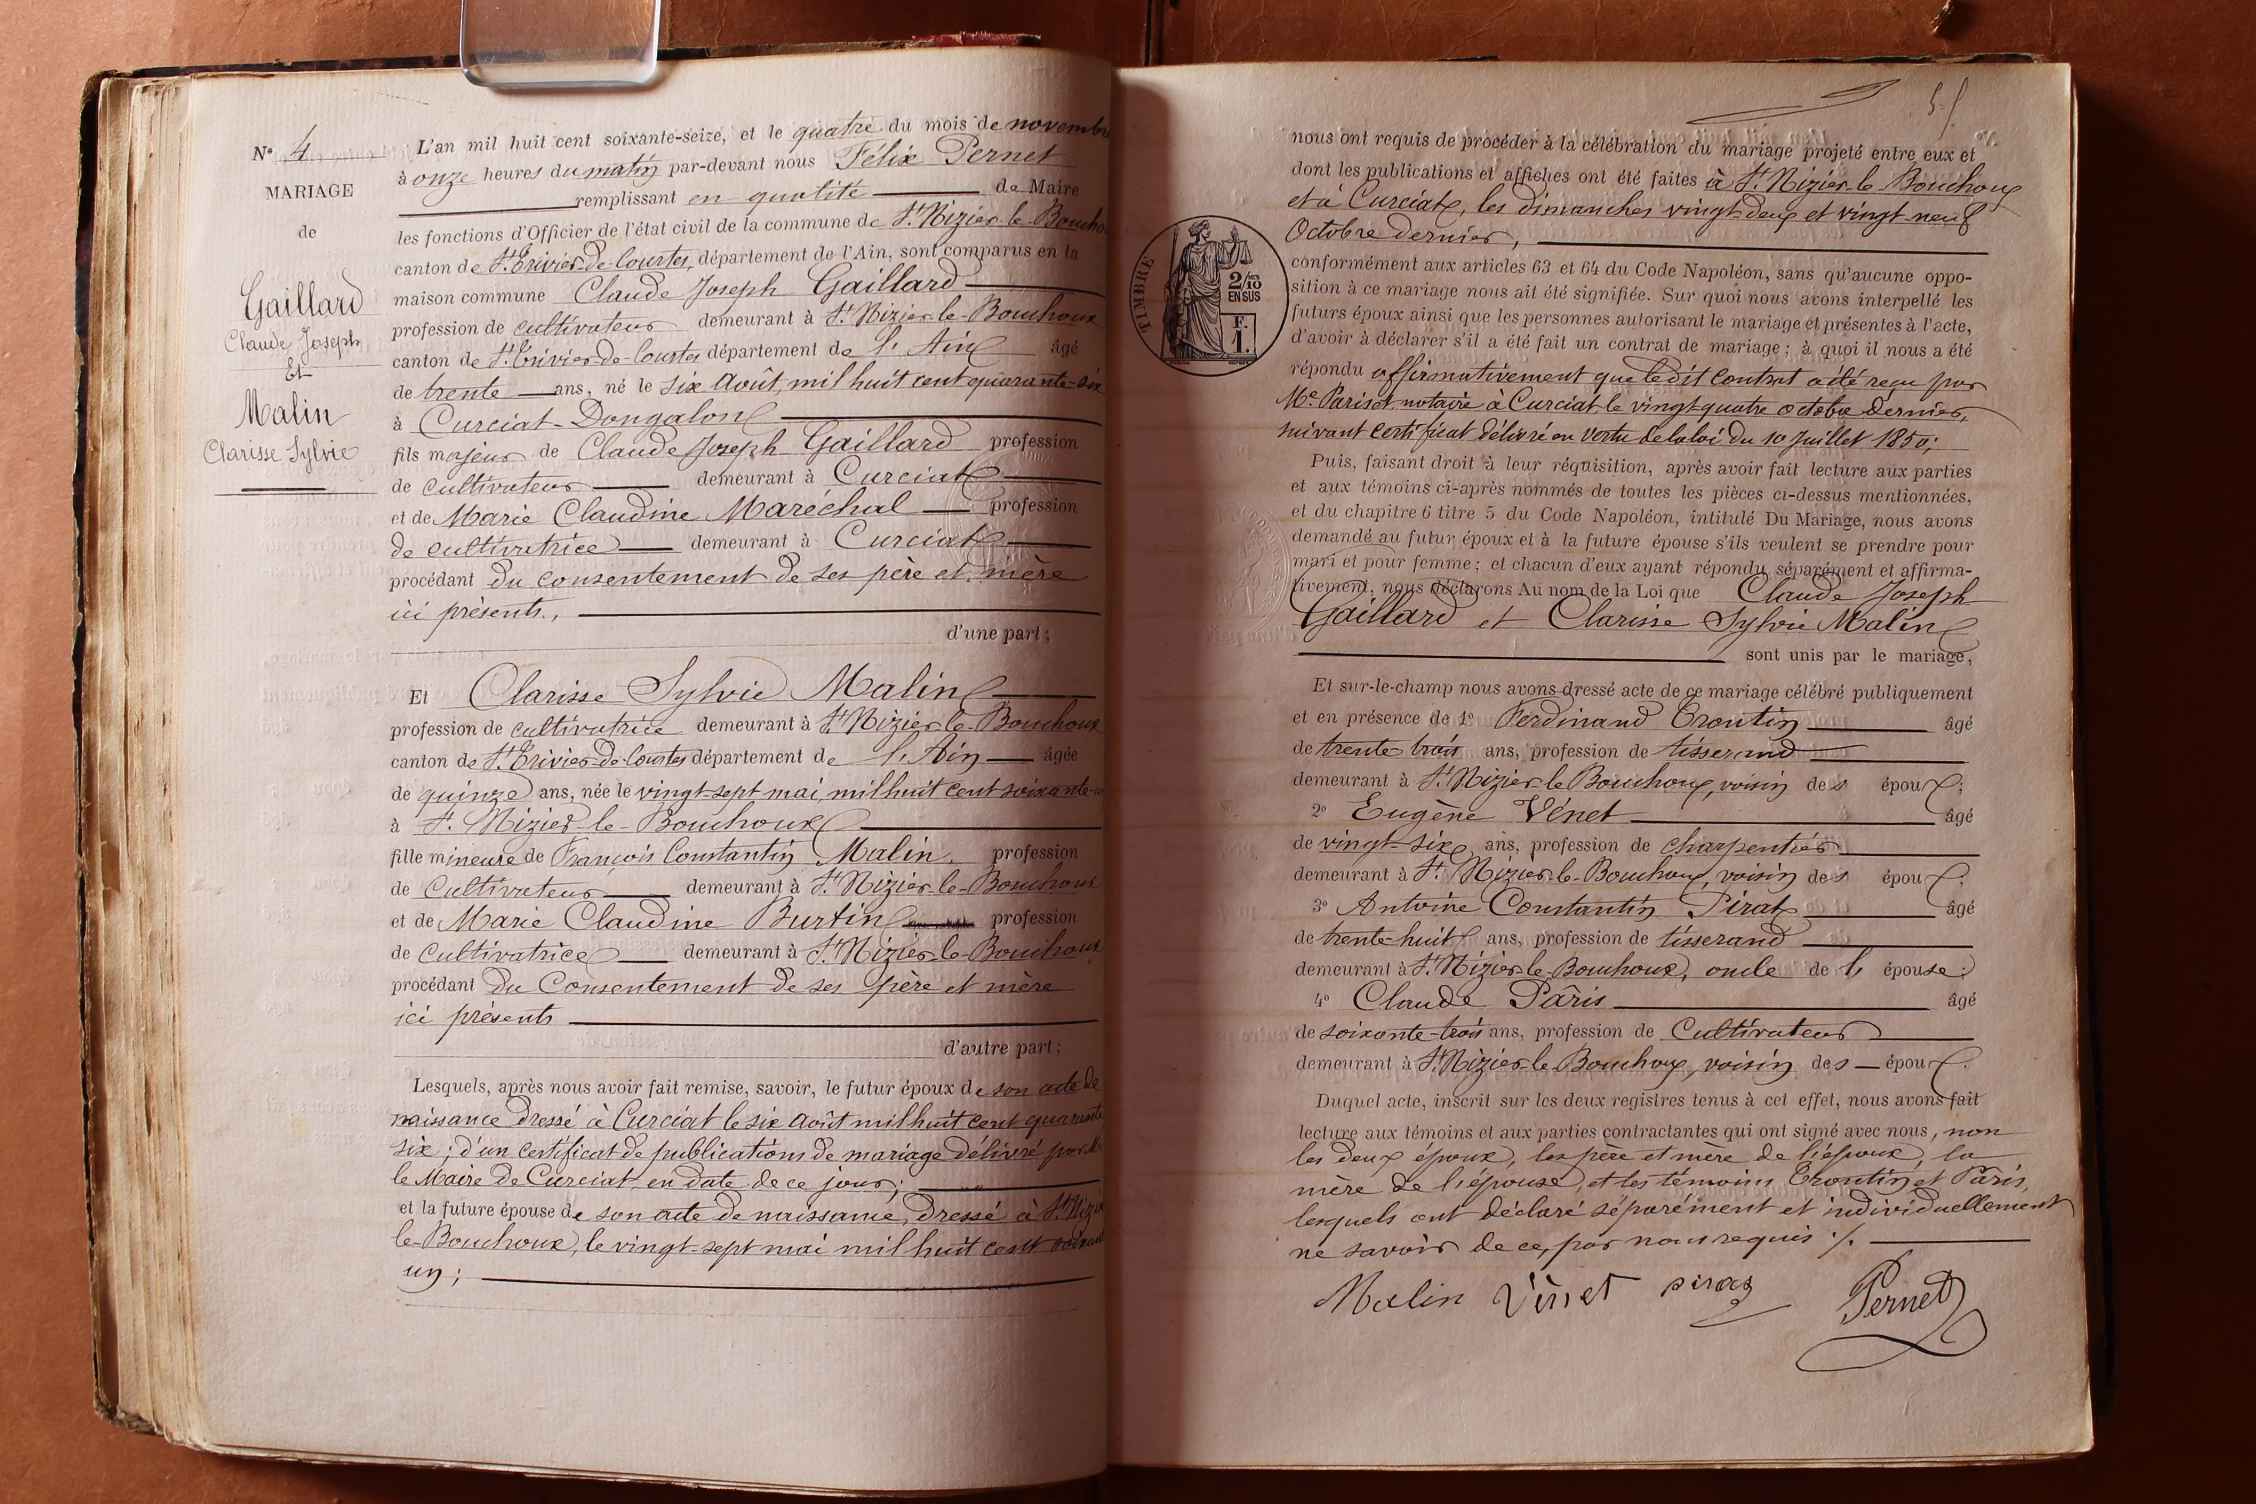 N° 4
MARIAGE
de
Gaillard
Claude Joseph
Et
Malin
Clarisse Sylvie
L'an mil huit cent soixante-seize, et le quatre du mois de novembre
à onze heures du matin par-devant nous Félix Pernet
remplissant en qualité de Maire
les fonctions d'Officier de l'état civil de la commune de St Nizier-le-Boucho
canton de St Trivier-de-Courtes, département de l'Ain, sont comparus en la
maison commune Claude Joseph Gaillard
profession de cultivateur demeurant à St Nizier-le-Bouchoux
canton de St Trivier-de-Courtes département de l'Ain âgé
de trente ans, né le six Août, mil huit cent quarante-six
à Curciat-Dongalon
fils majeur de Claude Joseph Gaillard profession
de cultivateur demeurant à Curciat
et de Marie Claudine Maréchal profession
de cultivatrice demeurant à Curciat
procédant du consentement de ses père et mère
ici présents,
d'une part;
Et Clarisse Sylvie Malin
profession de cultivatrice demeurant à St Nizier-le-Bouchoux
canton de St Trivier-de-Courtes département de l'Ain âgée
de quinze ans, née le vingt-sept mai, mil huit cent soixante-
à St Nizier-le-Bouchoux
fille mineure de François Constantin Malin, profession
de Cultivateur demeurant à St Nizier-le-Bouchoux
et de Marie Claudine Burtin profession
de Cultivatrice demeurant à St Nizier-le-Bouchoux
procédant du Consentement de ses père et mère
ici présents
d'autre part;
Lesquels, après nous avoir fait remise, savoir, le futur époux de son acte de
naissance dressé à Curciat le six Août mil huit cent quarante
six; d'un certificat de publications de mariage délivré par
le Maire de Curciat en date de ce jour;
et la future épouse de son acte de naissance, dressé à St Nizier
le-Bouchoux, le vingt-sept mai mil huit cent soixante
un;
5
nous ont requis de procéder à la célébration du mariage projeté entre eux et
dont les publications et affiches ont été faites à St Nizier-le-Bouchoux
et à Curciat, les dimanches vingt-deux et vingt-neuf
Octobre dernier,
conformément aux articles 63 et 64 du Code Napoléon, sans qu'aucune oppo-
sition à ce mariage nous ait été signifiée. Sur quoi nous avons interpellé les
futurs époux ainsi que les personnes autorisant le mariage et présentes à l'acte,
d'avoir à déclarer s'il a été fait un contrat de mariage; à quoi il nous a été
répondu affirmativement que ledit Contrat a été reçu par
Me Parisot, notaire à Curciat le vingt quatre octobre dernier,
suivant certificat délivré en vertu de la loi du 10 Juillet 1850;
Puis, faisant droit à leur réquisition, après avoir fait lecture aux parties
et aux témoins ci-après nommés de toutes les pièces ci-dessus mentionnées,
et du chapitre 6 titre 5 du Code Napoléon, intitulé Du Mariage, nous avons
demandé au futur époux et à la future épouse s'ils veulent se prendre pour
mari et pour femme; et chacun d'eux ayant répondu séparément et affirma-
tivement, nous déclarons Au nom de la Loi que Claude Joseph
Gaillard et Clarisse Sylvie Malin
sont unis par le mariage,
Et sur-le-champ nous avons dressé acte de ce mariage célébré publiquement
et en présence de 1° Ferdinand Trontin âgé
de trente trois ans, profession de tisserand
demeurant à St Nizier le Bouchoux, voisin des époux;
2° Eugène Vénet âgé
de vingt-six ans, profession de charpentier
demeurant à St Nizier-le-Bouchoux, voisin des époux;
3° Antoine Constantin Pirat âgé
de trente-huit ans, profession de tisserand
demeurant à St Nizier-le-Bouchoux, oncle de l' épouse;
4° Claude Pâris âgé
de soixante-trois ans, profession de Cultivateur
demeurant à St Nizier-le-Bouchoux, voisin des époux.
Duquel acte, inscrit sur les deux registres tenus à cet effet, nous avons fait
lecture aux témoins et aux parties contractantes qui ont signé avec nous, non
les deux époux, les père et mère de l'époux, la
mère de l'épouse, et les témoins Trontin et Pâris,
lesquels ont déclaré séparément et individuellement
ne savoir de ce, par nous requis ./.
Malin Vénet Piraz Pernet
TIMBRE
2/10
EN SUS
F.
1.